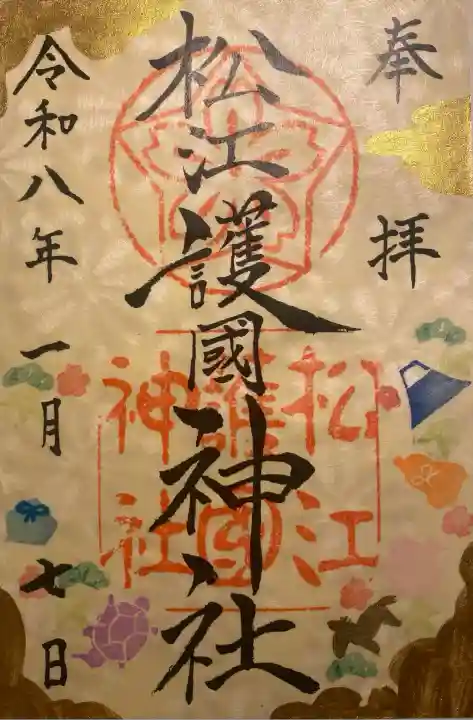 奉拝
松江護國神社
松江
護国
神社
令和八年一月七日